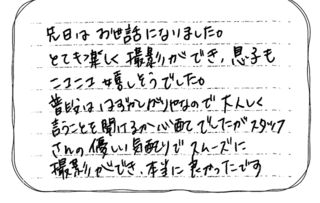 先日はお世話になりました。
とても楽しく撮影ができ、息子も
ニコニコ嬉しそうでした。
普段ははずかしがりやなので大人しく
言うことを聞けるか心配でしたがスタッフ
さんの優しい気配りでスムーズに
撮影ができ、本当に良かったです